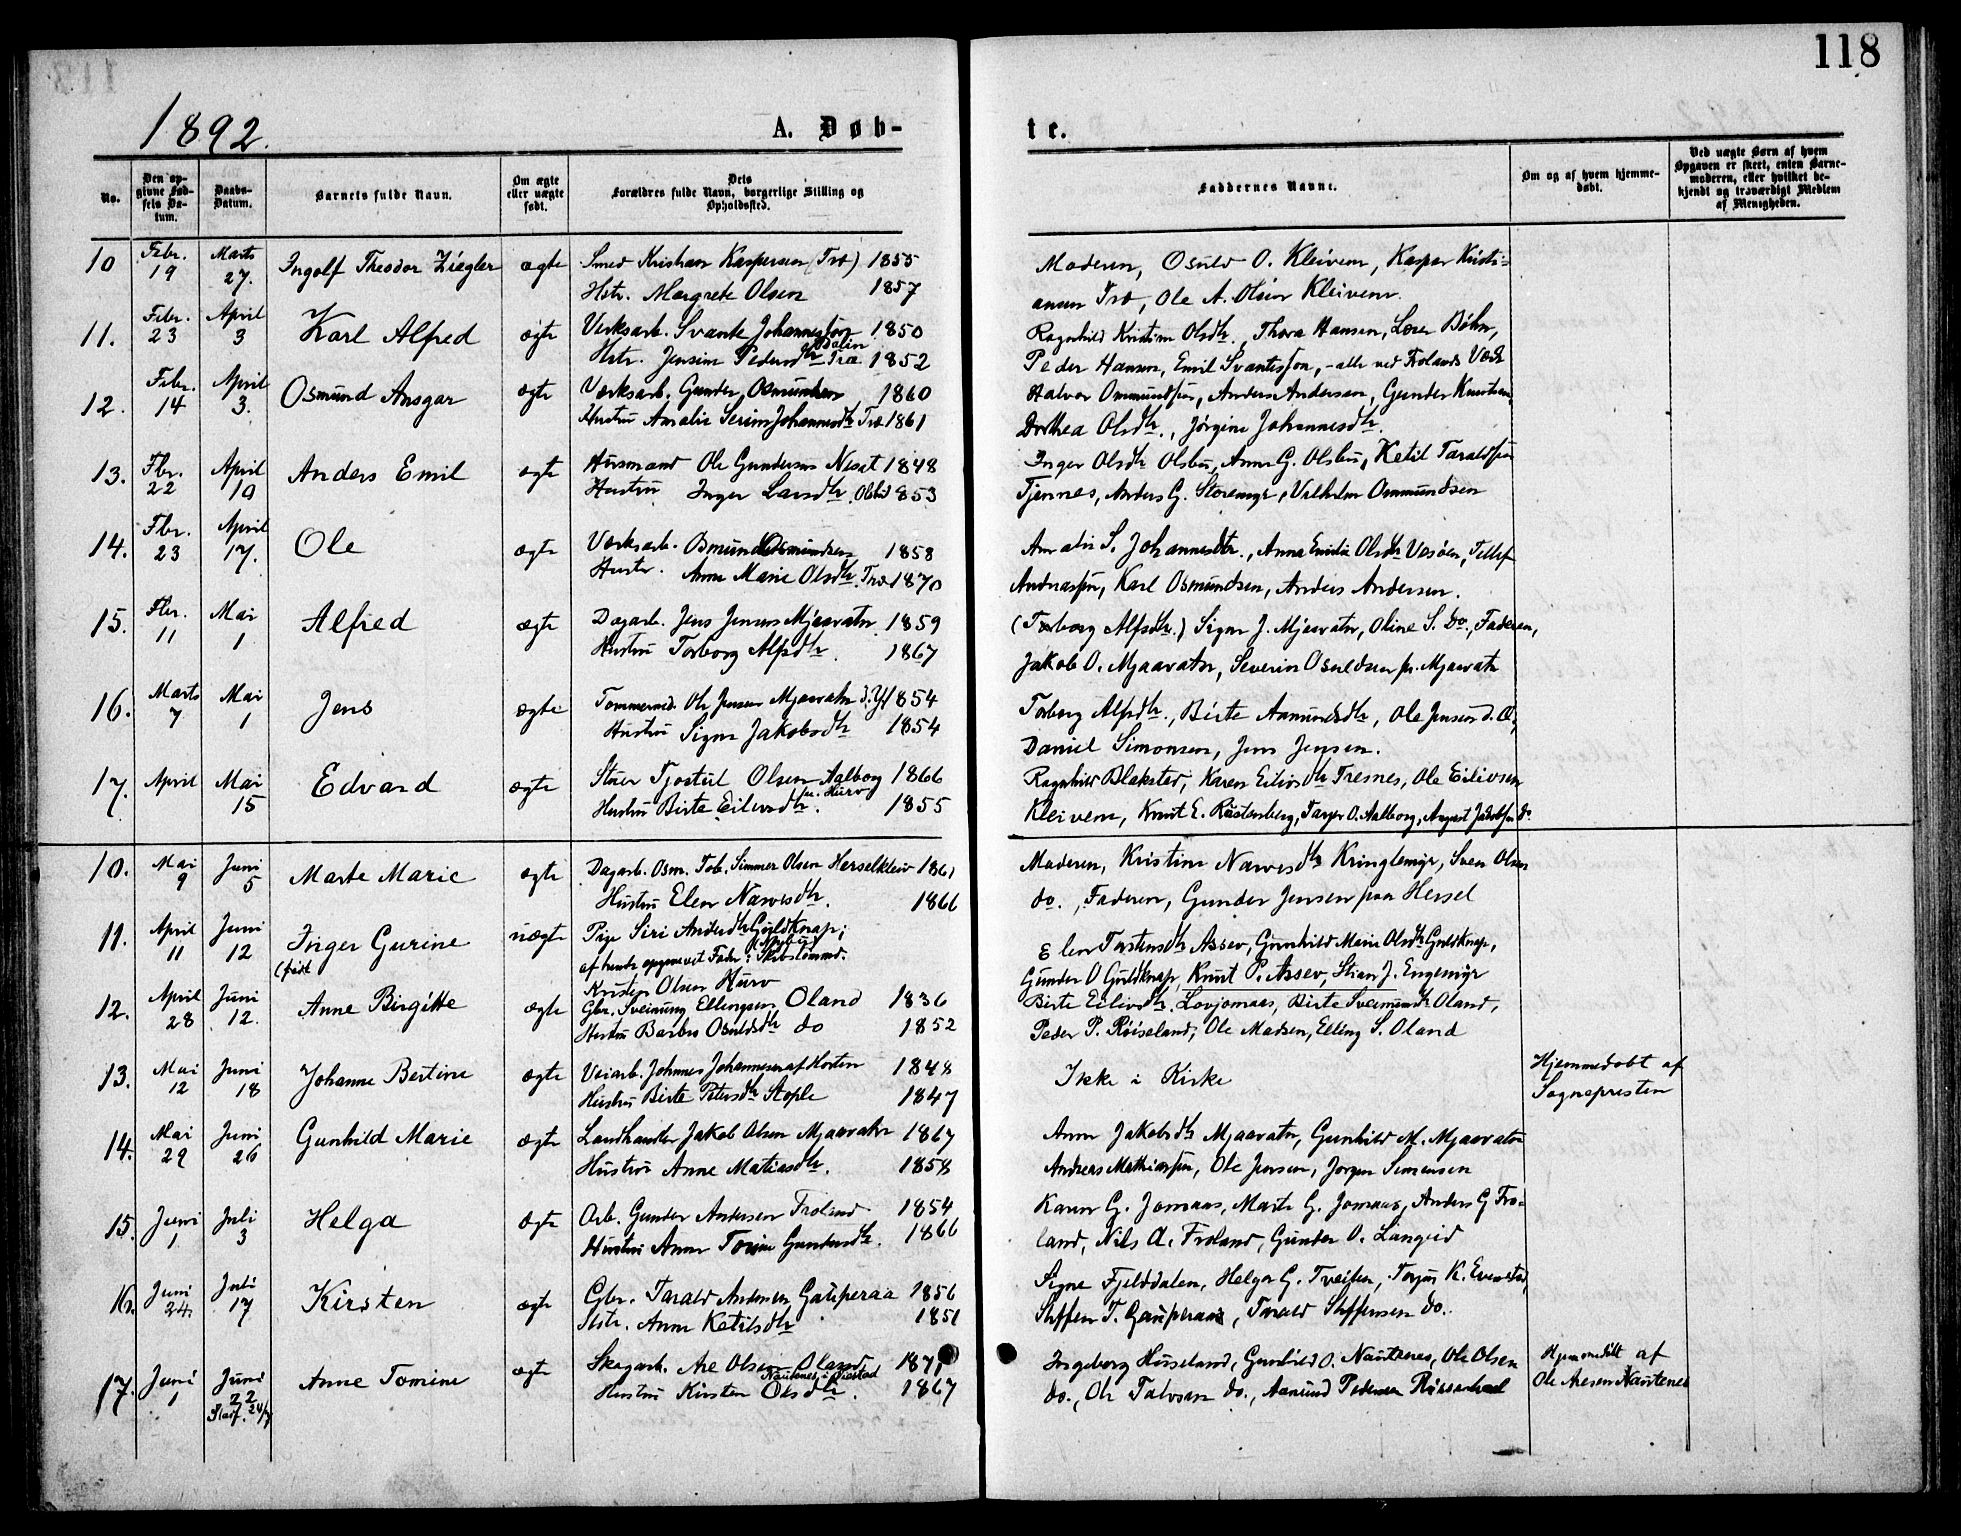 118
1892.
A. Døb-
te.
No.
Den opgivne Fødsels Datum.
Daabs-Datum.
Barnets fulde Navn.
Om ægte eller uægte født.
Dets Forældres fulde Navn, borgerlige Stilling og Opholdssted.
Faddernes Navne.
Om og af hvem hjemmedøbt.
Ved uægte Børn af hvem Opgaven er skeet, enten Barnemoderen, eller hvilket bekjendt og troværdigt Medlem af Menigheden.
10 Febr. 19 Marts 27. Ingolf Theodor Ziegler ægte Smed Kristian Kaspersen (Træ) 1855
Hstr. Margrete Olsen 1857
Moderen, Osuld O. Kleiven, Kaspar Kristi-
ansen Træ, Ole A. Olsen Kleiven.
11. Febr. 23 April 3 Karl Alfred ægte Verksarb. Svante Johannesson Dalin 1850
Hstr. Jensine Pedersdtr Træ 1852
Ragnhild Kristine Olsdtr., Thora Hansen, Bøhn,
Peder Hansen, Emil Svantesson, - alle ved Frolands Værk
12. Febr. 14 April 3. Osmund Ansgar ægte Værksarb. Gunder Osmundsen 1860
Hustru Amalie Serine Johannesdtr Træ 1861
Halvor Ommundsen, Anders Andersen, Gunder Knutsen,
Dorthea Olsdtr., Jørgine Johannesdtr.
13. Fbr. 22 April 10 Anders Emil ægte Husmand Ole Gundersen 1848
Hustru Inger Larsdtr. Olsbu 1853
Inger Olsdtr Olsbu, Anne G. Olsbu, Ketil Taraldsen
Tjennes, Anders G. Storemyr, Vilhelm Ommundsen
14. Fbr. 23 April 17. Ole ægte Værksarb. Osmund Osmundsen 1858
Hustr. Anne Marie Olsdtr. Træ 1870
Amalie S. Johannesdtr., Anna Emilie Olsdtr Vasøen, Tellef
Andreassen, Karl Osmundsen, Anders Andersen.
15. Fbr. 11 Mai 1 Alfred ægte Dagarb. Jens Jensen Mjaavatn 1859
Hustru Torborg Alfsdtr. 1867
(Torborg Alfsdtr.) Signe J. Mjaavatn, Oline S. Do., Faderen,
Jakob O. Mjaavatn, Severin Osuldsen fr. Mjaavatn
16. Marts 7 Mai 1 Jens ægte Tømmermd. Ole Jensen Mjaavatn d.Y. 1854
Hustru Signe Jakobsdtr 1854
Torborg Alfsdtr., Birte Aamundsdtr, Ole Jensen d. Æ,
Daniel Simonsen, Jens Jensen.
17. April Mai 15 Edvard ægte Tjostul Olsen Aalborg fr. Hurv 1866
Hustru Birte Eilevsdtr. 1855
Ragnhild Blakstad, Karen Eilivsdtr Tresnes, Ole Eilivsen
Kleiven, Knut E. Røstenberg, Tarjer O. Aalborg, August Jakobsen do.
10. Mai 9 Juni 5 Marte Marie ægte Dagarb. Osm. Tob. Simmer Olsen Herselkleiv 1861
Hustru Elen Navesdtr. 1866
Moderen, Kristine Navesdtr Kringlemyr, Sven Olsen
do., Faderen, Gunder Jensen paa Hersel
11. April 11 Juni 12 Inger Gurine (født uægte Pige Siri Andersdtr Guldknap;
af hende opgivet Fader: Skibstømmd.
Kristen Olsen Hurv
Elen Torstensdtr Assev, Gunhild Marie Olsdtr Guldknap,
Gunder O Guldknap, Knut P. Assev, Stian J. Engemyr
12. April 28 Juni 12. Anne Birgitte ægte Gbr. Sveinung Ellingsen Oland 1836
Hustru Barbro Osuldsdtr do 1852
Birte Eilivsdtr. Lovjomaas, Birte Sveinungsdtr Oland,
Peder P. Røiseland, Ole Madsen, Elling S. Oland
13. Mai 12 Juni 18 Johanne Bertine ægte Veiarb. Johannes Johannesen af Horten 1848
Hustru Birte Petersdtr Stople 1847
Ikke i Kirke
Hjemmedøbt af
Sognepresten
14. Mai 29 Juni 26 Gunhild Marie ægte Landhandler Jakob Olsen Mjaavatn 1867
Hustru Anne Matiasdtr. 1858
Anne Jakobsdtr Mjaavatn, Gunhild M. Mjaavatn
Andreas Mathiassen, Ole Jensen, Jørgen Simonsen
15. Juni 1 Juli 3 Helga ægte Arb. Gunder Andersen Froland 1854
Hustru Anne Tomine Gundersdtr. 1866
Karen G. Jomaas, Marte G. Jomaas, Anders G Fro-
land, Nils A. Froland, Gunder O. Langeid
16. Juni 24. Juli 17 Kirsten ægte Gbr. Tarald Andersen Gauperaa 1856
Hstr. Anne Ketilsdtr 1851
Signe Fjelddalen, Helge G. Tveiten, Torjus K. Evenstad,
Steffen T. Gauperaas, Tarald Steffensen do.
17. Juni 1 Juni 22 Stadf. 24/7 Anne Tomine ægte Skogarb. Are Olsen Oland 1871
Nautenes i Øiestad
Hustru Kirsten Olsdtr. 1867
Ingeborg Huseland, Gunhild O. Nautenes, Ole Olsen
do., Ole Talvsen do., Aanund Pedersen Risland
Hjemmedøbt af
Ole Aresen Nautenes